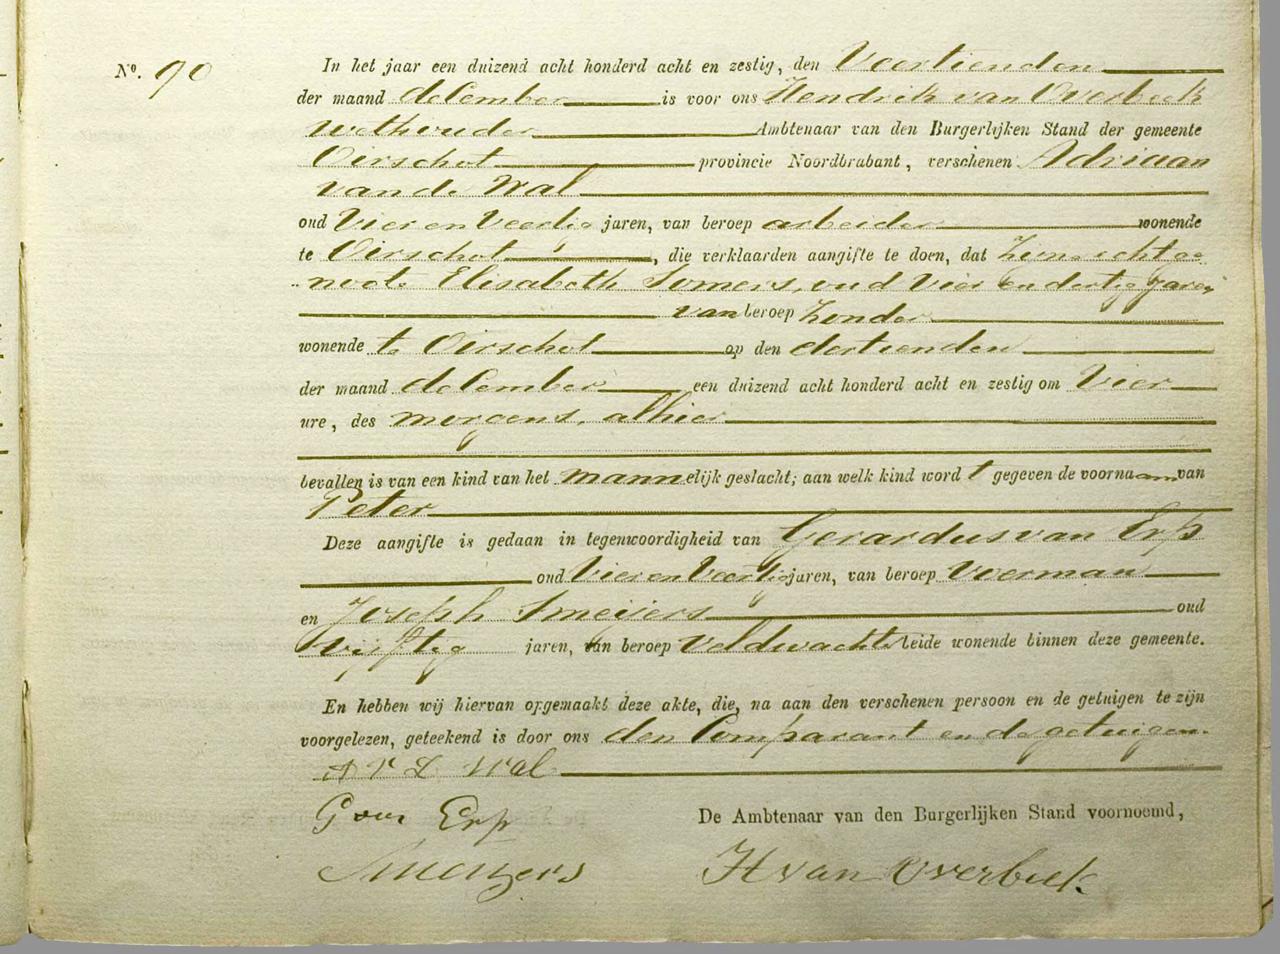 No. 90
In het jaar een duizend acht honderd acht en zestig, den Veertienden
der maand december is voor ons Hendrik van Overbeek
wethouder Ambtenaar van den Burgerlijken Stand der gemeente
Oirschot provincie Noordbrabant, verschenen Adriaan
van de Wal
oud Vier en Veertig jaren, van beroep arbeider wonende
te Oirschot, die verklaarden aangifte te doen, dat Zijne echtge
noote Elisabeth Somers, oud Vier en dertig jaren,
van beroep Zonder
wonende te Oirschot op den dertienden
der maand december een duizend acht honderd acht en zestig om Vier
ure, des morgens, alhier
bevallen is van een kind van het mannelijk geslacht; aan welk kind wordt gegeven de voornaam van
Peter
Deze aangifte is gedaan in tegenwoordigheid van Gerardus van Erp
oud Vier en Veertig jaren, van beroep Voerman
en Joseph Smeijers oud
vijftig jaren, van beroep Veldwachter beide wonende binnen deze gemeente.
En hebben wij hiervan opgemaakt deze akte, die, na aan den verschenen persoon en de getuigen te zijn
voorgelezen, geteekend is door ons den Comparant en de getuigen.
A V D Wal
G van Erp
De Ambtenaar van den Burgerlijken Stand voornoemd,
Smeijers
H van Overbeek